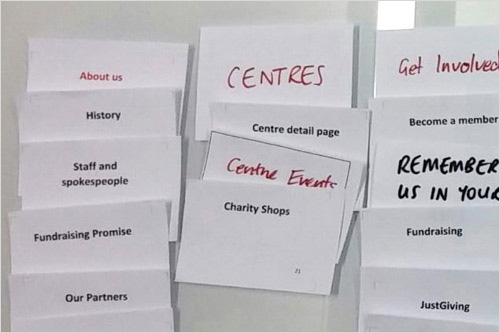 About us
History
Staff and
spokespeople
Fundraising Promise
Our Partners
CENTRES
Centre detail page
Centre Events
Charity Shops
21
Get Involved
Become a member
REMEMBER
US IN YOUR
Fundraising
JustGiving